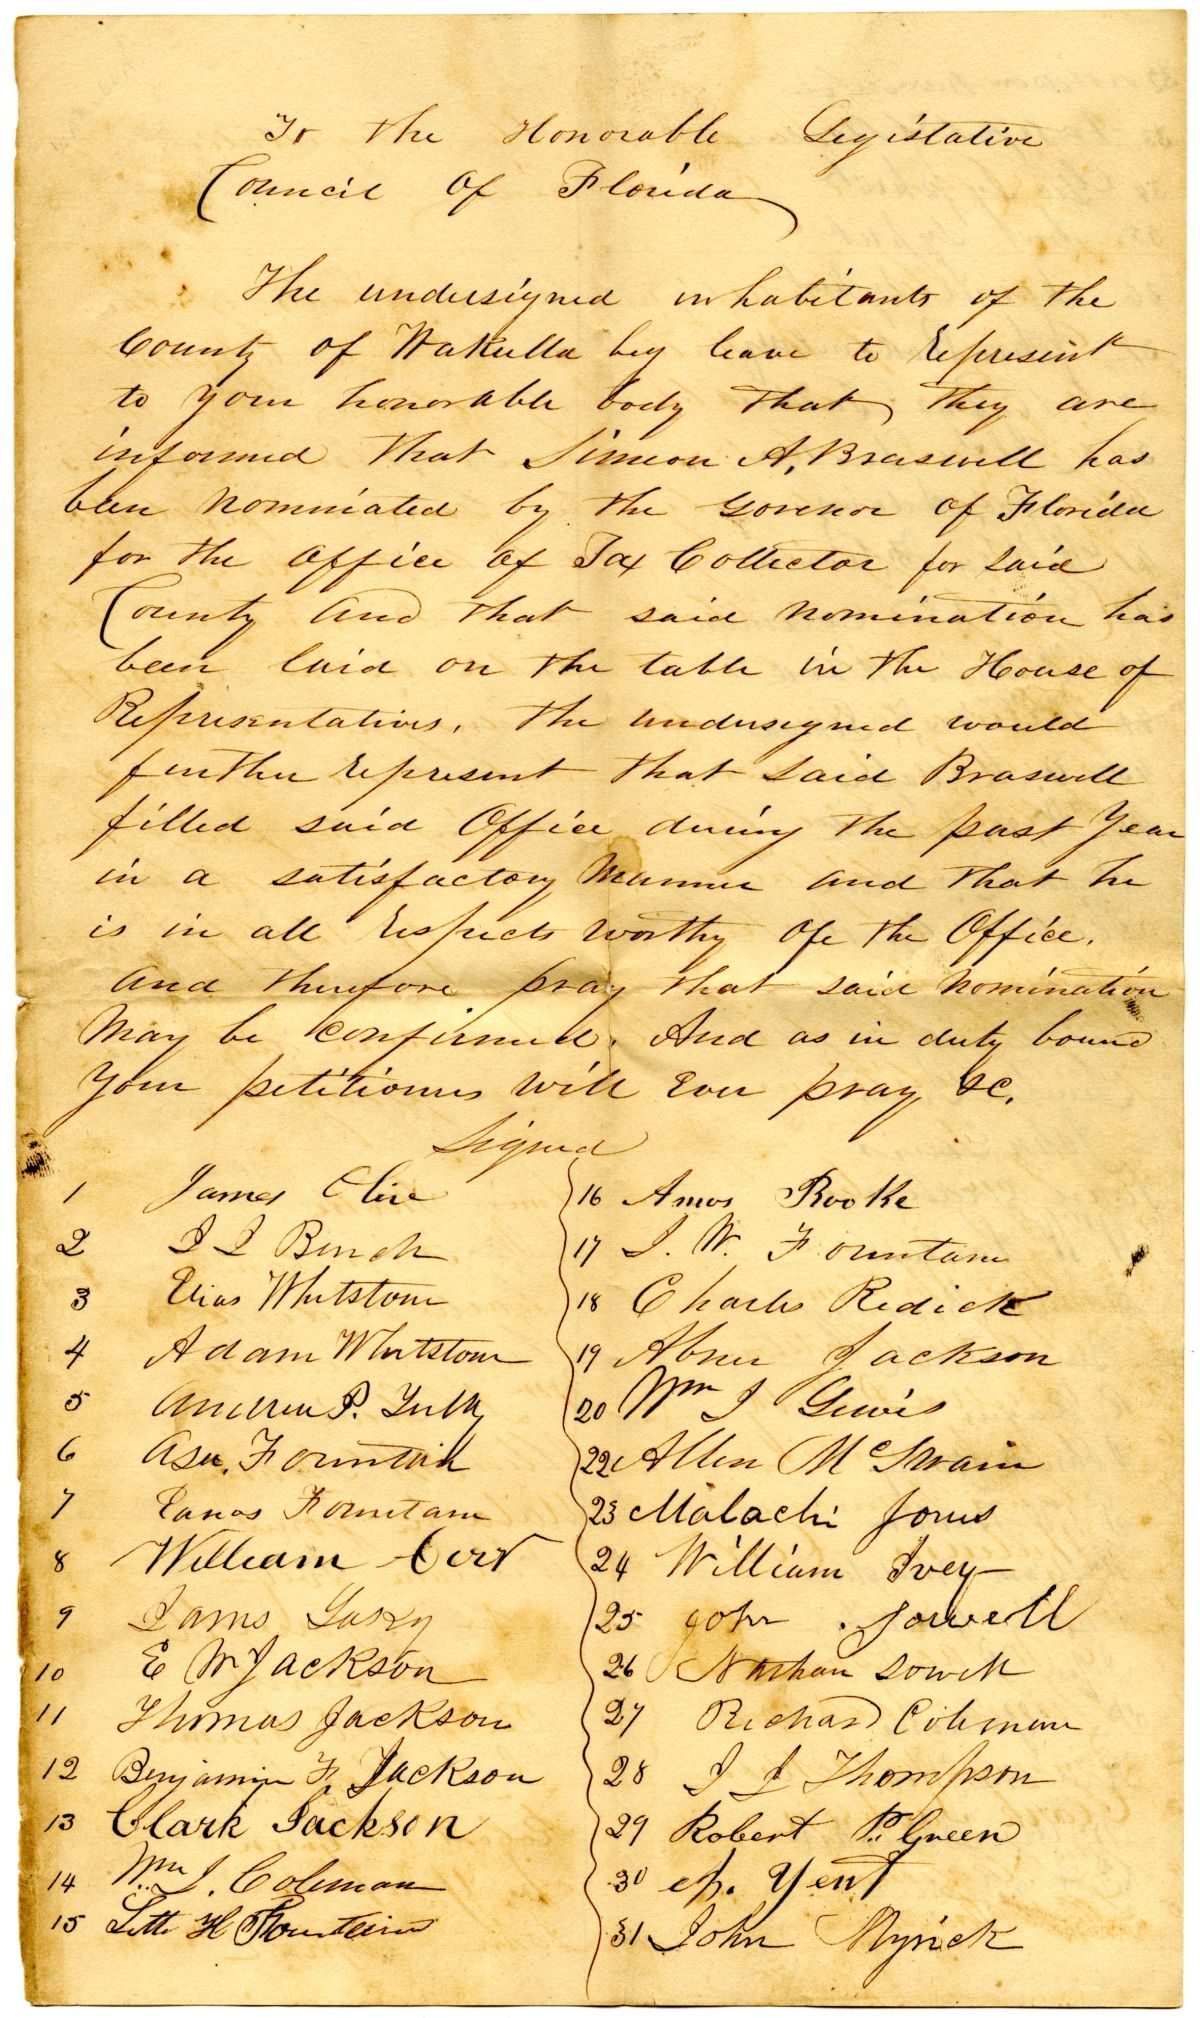 To the Honorable Legislative
Council of Florida
The undersigned inhabitants of the
County of Wakulla beg leave to represent
to your honorable body that they are
informed that Simeon A. Braswell has
been nominated by the Govenor of Florida
for the office of Tax Collector for said
County and that said nomination has
been laid on the table in the House of
Representatives. the undersigned would
further represent that said Braswell
filled said Office during the past Year
in a satisfactory Manner and that he
is in all respects worthy of the Office.
And therefore pray that said Nomination
May be confirmed. And as in duty bound
Your petitioners will Ever pray &c.
Signed
1 James Cline
2 J J Bunch
3 Elias Whitstone
4 Adam Whitstone
5 Andrew P. Tully
6 Asa Fountain
7 Fountain
8 William
9 James
10 E W Jackson
11 Thomas Jackson
12 Benjamin F. Jackson
13 Clark Jackson
14 Wm J. Coleman
15 H Fountain
16 Amos Rooke
17 J. W. Fountain
18 Charles Redick
19 Abner Jackson
20 Wm J Lewis
22 Allen McSwain
23 Malachi Jones
24 William Ivey
25 John Sowell
26 Nathan Sowell
27 Richard Coleman
28 J J Thompson
29 Robert P. Green
30 Yent
31 John Myrick